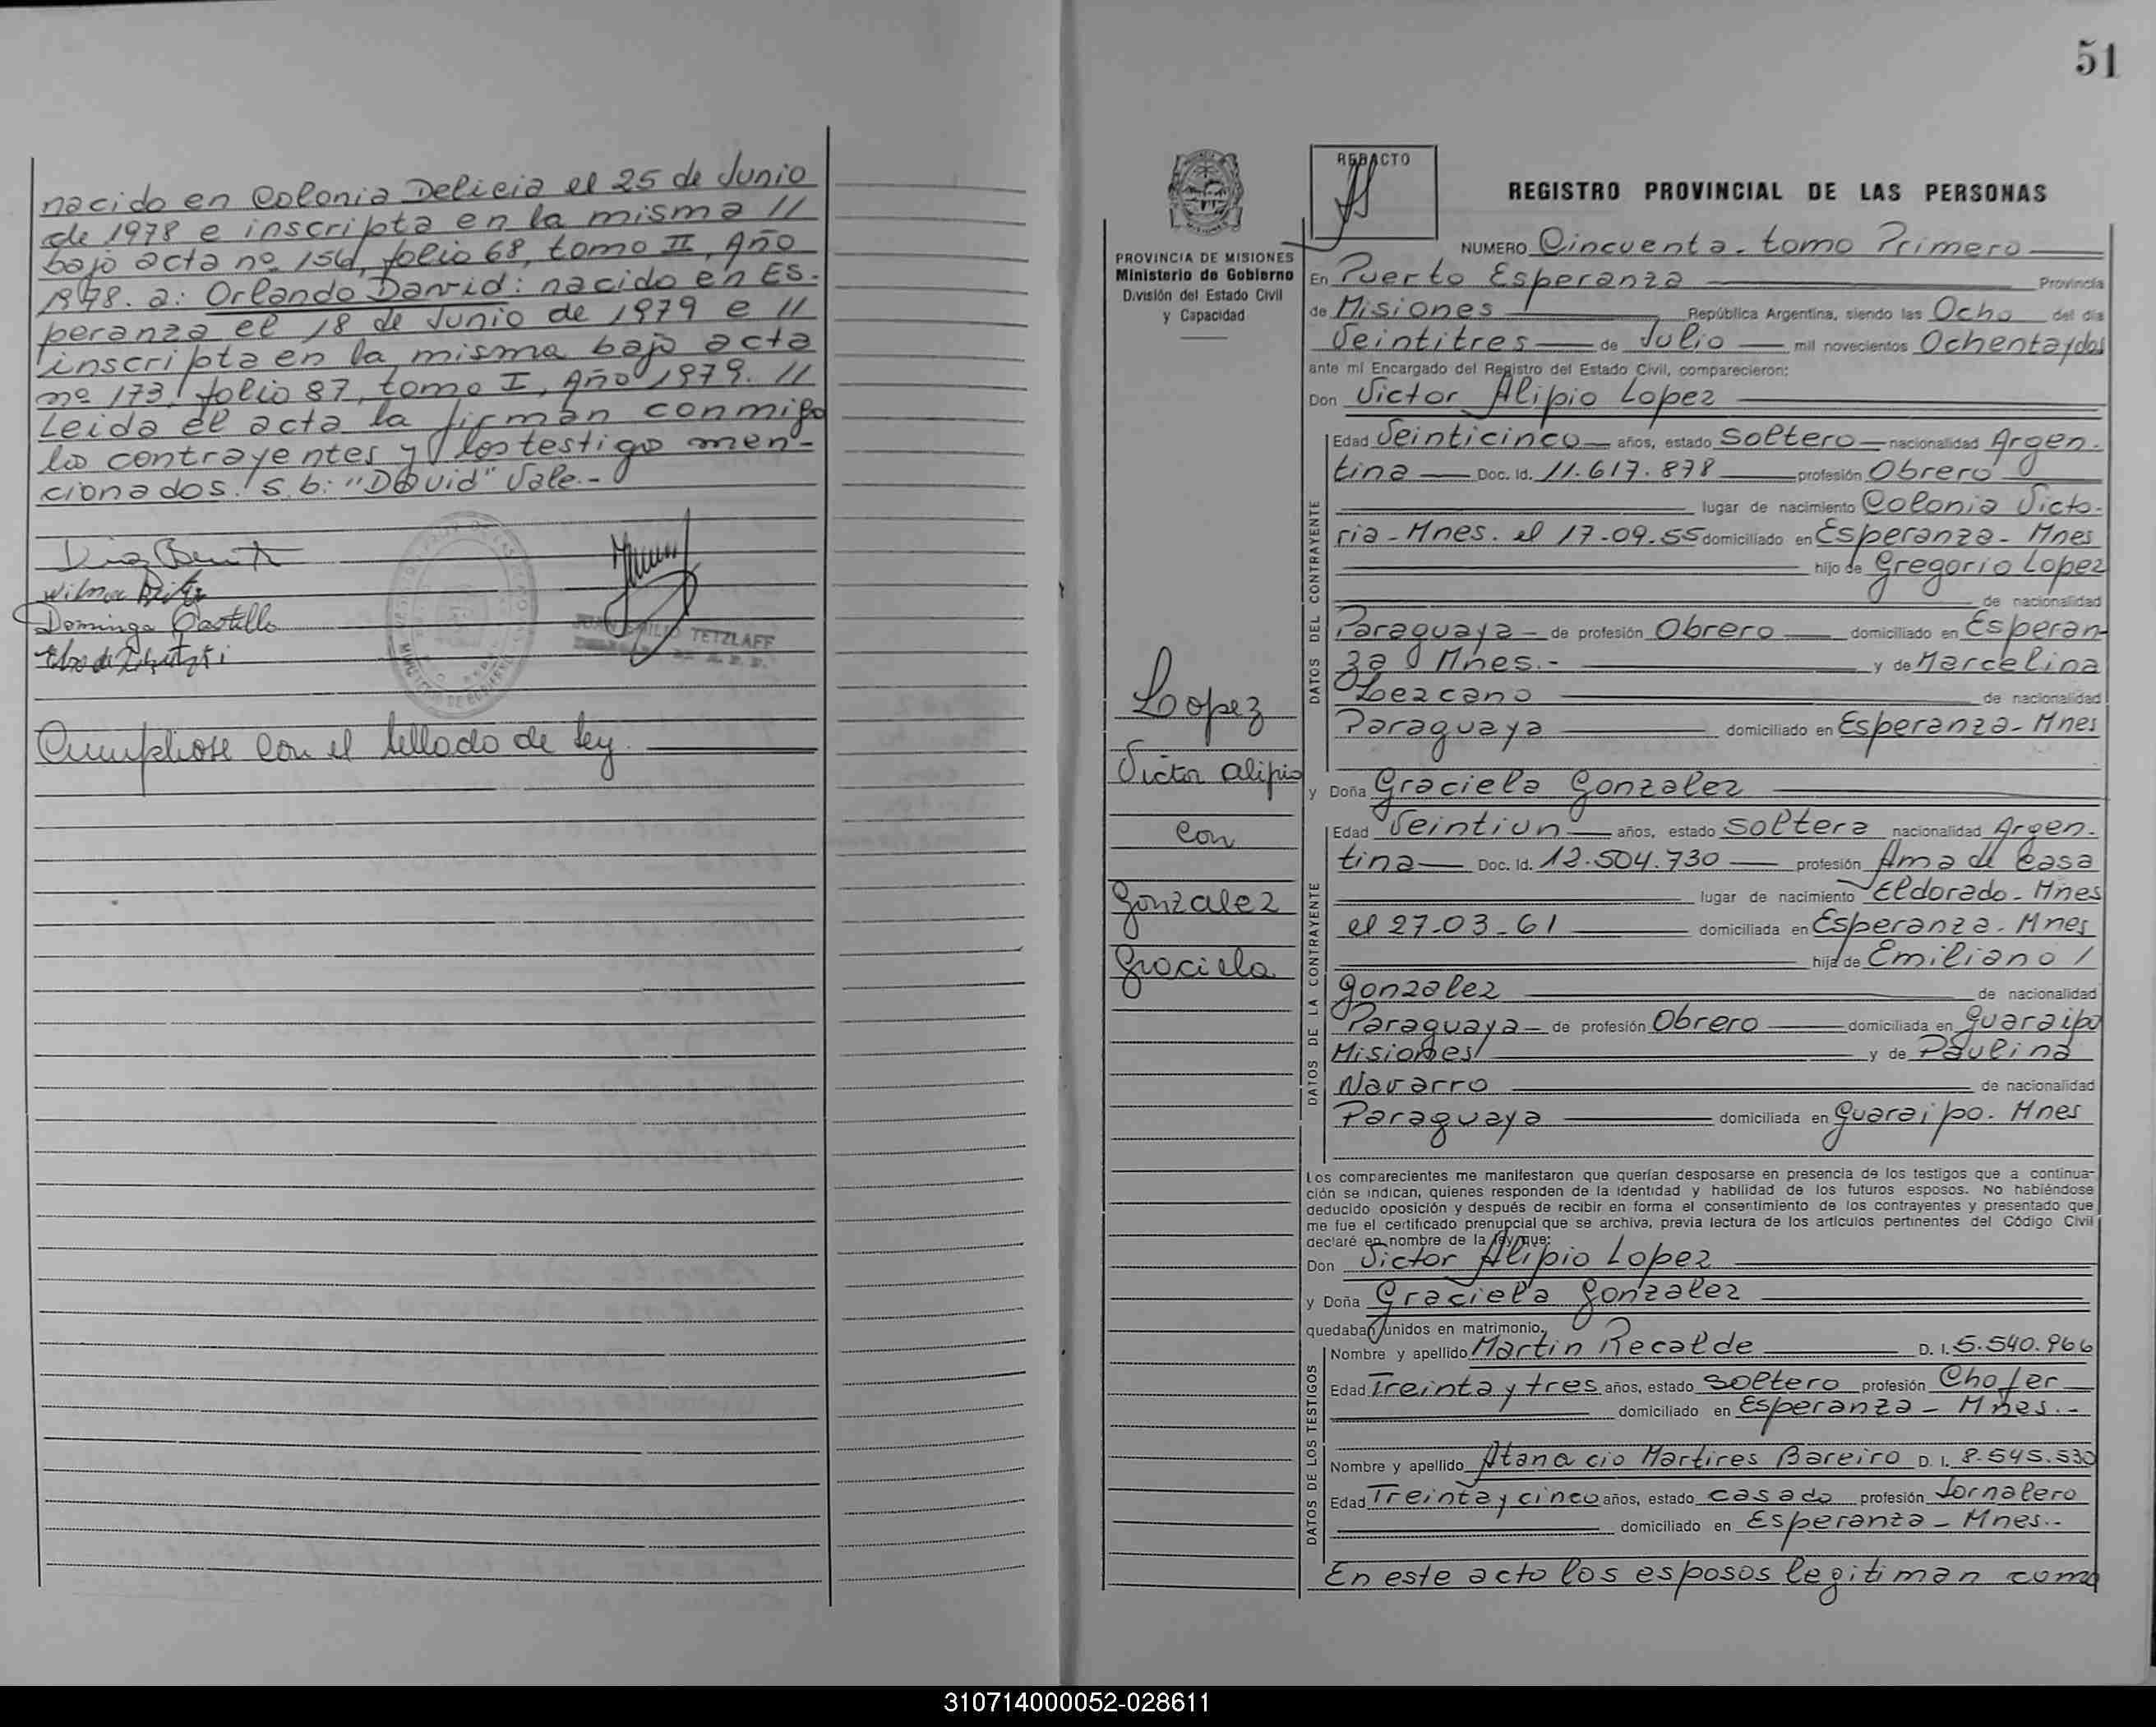 nacido en Colonia Delicia el 25 de Junio
de 1978 e inscripta en la misma //
bajo acta nº 154, folio 68, tomo II, Año
1978. a: Orlando David: nacido en Es-
peranza el 18 de Junio de 1979 e //
inscripta en la misma bajo acta
nº 173, folio 87, tomo I, Año 1979. //
Leida el acta la firman conmigo
los contrayentes y los testigo men-
cionados. s.b: "David" Vale.-
Dominga Castillo
JUAN EMILIO TETZLAFF
Cumpliose con el sellado de ley.
51
PROVINCIA DE MISIONES
Ministerio de Gobierno
División del Estado Civil
y Capacidad
Lopez
Victor Alipio
con
Gonzalez
Graciela
REDACTO
REGISTRO PROVINCIAL DE LAS PERSONAS
NUMERO Cincuenta. tomo Primero
En Puerto Esperanza Provincia
de Misiones República Argentina, siendo las Ocho del día
Veintitres de Julio mil novecientos Ochenta y dos
ante mí Encargado del Registro del Estado Civil, comparecieron:
Don Victor Alipio Lopez
DATOS DEL CONTRAYENTE
Edad Veinticinco años, estado Soltero nacionalidad Argen-
tina Doc. Id. 11.617.878 profesión Obrero
lugar de nacimiento Colonia Victo-
ria - Mnes. el 17-09-55 domiciliado en Esperanza - Mnes
hijo de Gregorio Lopez
de nacionalidad
Paraguaya de profesión Obrero domiciliado en Esperan-
za Mnes.- y de Marcelina
Lezcano de nacionalidad
Paraguaya domiciliado en Esperanza - Mnes
y Doña Graciela Gonzalez
DATOS DE LA CONTRAYENTE
Edad Veintiun años, estado Soltera nacionalidad Argen-
tina Doc. Id. 12.504.730 profesión Ama de Casa
lugar de nacimiento Eldorado - Mnes
el 27-03-61 domiciliada en Esperanza - Mnes
hija de Emiliano /
Gonzalez de nacionalidad
Paraguaya de profesión Obrero domiciliada en Guaraipo
Misiones y de Paulina
Navarro de nacionalidad
Paraguaya domiciliada en Guaraipo. Mnes
Los comparecientes me manifestaron que querían desposarse en presencia de los testigos que a continua-
ción se indican, quienes responden de la identidad y habilidad de los futuros esposos. No habiéndose
deducido oposición y después de recibir en forma el consentimiento de los contrayentes y presentado que
me fue el certificado prenupcial que se archiva, previa lectura de los artículos pertinentes del Código Civil
declaré en nombre de la ley que:
Don Victor Alipio Lopez
y Doña Graciela Gonzalez
quedaban unidos en matrimonio.
DATOS DE LOS TESTIGOS
Nombre y apellido Martin Recalde D. I. 5.540.966
Edad Treinta y tres años, estado Soltero profesión Chofer
domiciliado en Esperanza - Mnes.-
Nombre y apellido Atanacio Martires Bareiro D. I. 8.545.530
Edad Treinta y cinco años, estado casado profesión Jornalero
domiciliado en Esperanza - Mnes.-
En este acto los esposos legitiman como
310714000052-028611